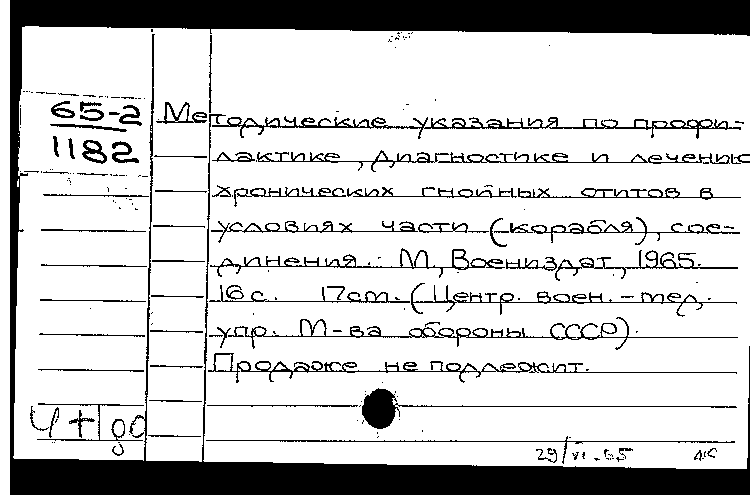 65-2
1182
Методические указания по профи-
лактике, диагностике и лечению
хронических гнойных отитов в
условиях части (корабля), сое-
динения. М., Воениздат, 1965.
16 с. 17 cm. (Центр. воен.-мед.
упр. М-ва обороны СССР).
Продаже не подлежит.
Ч+1
29/VI-65